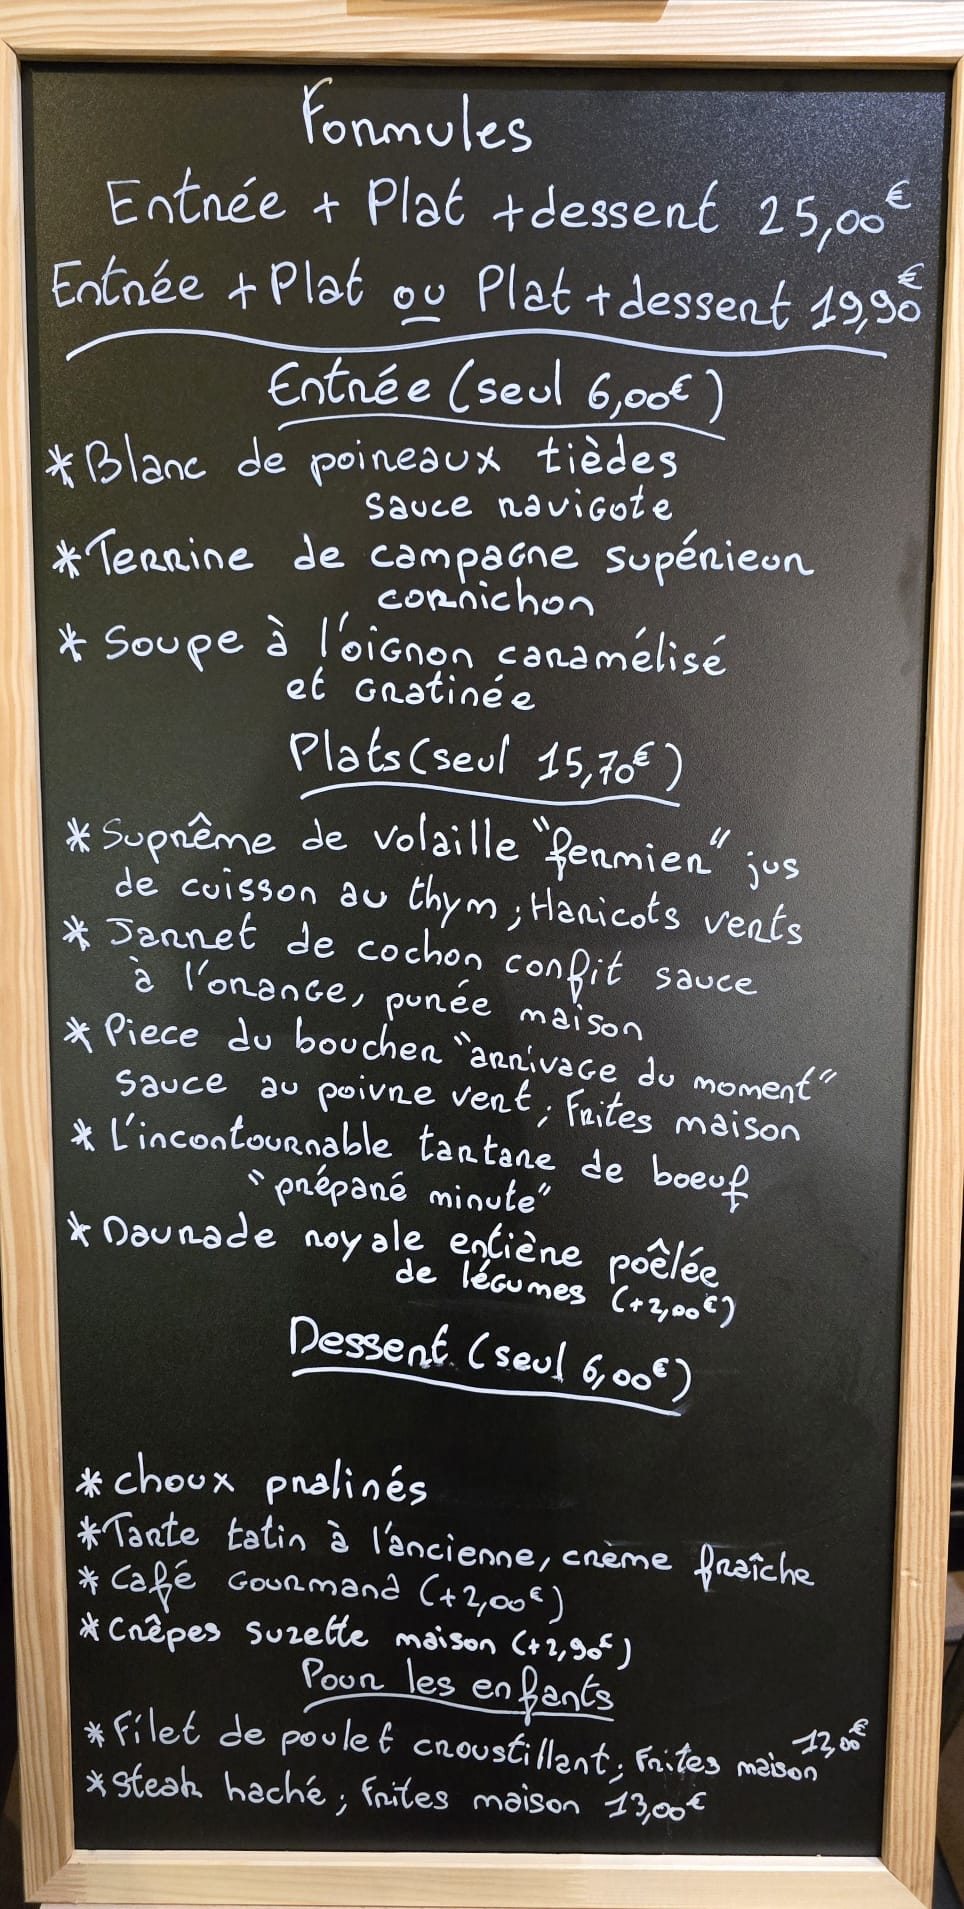 Formules
Entrée + Plat + dessert 25,00€
Entrée + Plat ou Plat + dessert 19,90€
Entrée (seul 6,00€)
* Blanc de poireaux tièdes
sauce ravigote
* Terrine de campagne supérieur
cornichon
* Soupe à l'oignon caramélisé
et Gratinée
Plats (seul 15,70€)
* Suprême de volaille "fermier" jus
de cuisson au thym ; Haricots verts
* Jarret de cochon confit sauce
à l'orange, purée maison
* Piece du boucher "arrivage du moment"
sauce au poivre vert ; Frites maison
* L'incontournable tartare de boeuf
"préparé minute"
* Daurade royale entière poêlée
de légumes (+2,00€)
Dessert (seul 6,00€)
* choux pralinés
* Tarte tatin à l'ancienne, crème fraîche
* Café Gourmand (+2,00€)
* Crêpes suzette maison (+2,90€)
Pour les enfants
* Filet de poulet croustillant ; Frites maison 12,00€
* Steak haché ; frites maison 13,00€